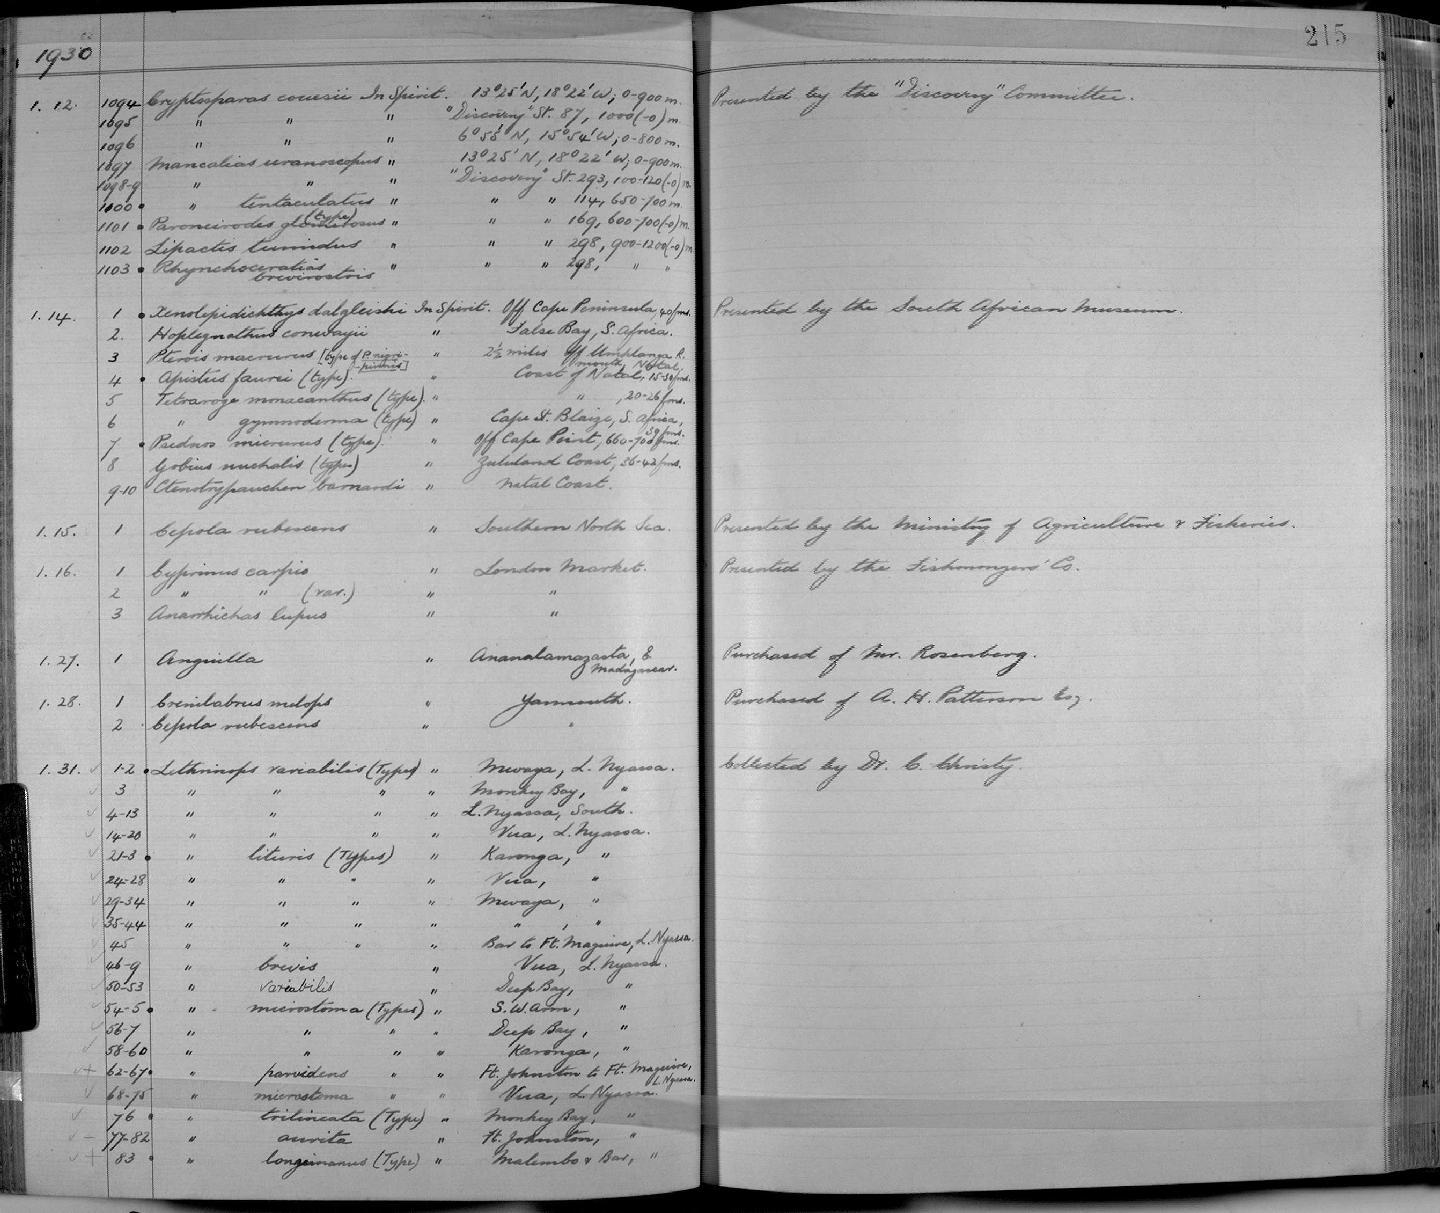 1930
215
1. 12. 1094 Cryptosparas couesii In Spirit. 13°25'N, 18°22'W; 0-900 m. Presented by the "Discovery" Committee.
1095 " " " "Discovery" St. 87, 1000(-0) m.
1096 " " " 6°55' N, 15°54'W; 0-800 m.
1097 Mancalias uranoscopus " 13°25' N, 18°22' W; 0-900 m.
1098-9 " " " "Discovery" St. 293, 100-120(-0) m.
1100 " tentaculatus " " " 114, 650-700 m.
1101 Paroneirodes glomerosus (type) " " " 169, 600-700(-0) m.
1102 Lipactis tumidus " " " 298, 900-1200(-0) m.
1103 Rhynchoceratias brevirostris " " " 298, " "
1. 14. 1 Xenolepidichthys dalgleishi In Spirit. Off Cape Peninsula, 40 fms. Presented by the South African Museum.
2. Hoplegnathus conwayii " False Bay, S. Africa.
3 Pterois macrurus [type of P. nigripinnis] " 2½ miles off Umhlanga R. mouth, Natal,
4 Apistus faurei (type). " Coast of Natal, fms.
5 Tetraroge monacanthus (type) " " , 20-26 fms.
6 " gymnoderma (type) " Cape St. Blaize, S. Africa, fms.
7 micrurus (type). " Off Cape Point, 660-700 fms.
8 Gobius nuchalis (type) " Zululand Coast, 36-42 fms.
9-10 Ctenotrypauchen barnardi " Natal Coast.
1. 15. 1 Cepola rubescens " Southern North Sea. Presented by the Ministry of Agriculture & Fisheries.
1. 16. 1 Cyprinus carpio " London Market. Presented by the Fishmongers' Co.
2 " " (var.) " "
3 Anarrhichas lupus " "
1. 27. 1 Anguilla " Ananalamazaota, E Madagascar. Purchased of Mr. Rosenberg.
1. 28. 1 Crenilabrus melops " Yarmouth. Purchased of A. H. Patterson Esq.
2 Cepola rubescens " "
1. 31. 1-2 Lethrinops variabilis (Types) " Mwaya, L. Nyassa. Collected by Dr. C. Christy.
3 " " " " Monkey Bay, "
4-13 " " " " L. Nyassa, South.
14-20 " " " " Vua, L. Nyassa.
21-3 " lituris (Types) " Karonga, "
24-28 " " " " Vua, "
29-34 " " " " Mwaya, "
35-44 " " " " " , "
45 " " " " Bar to Ft. Maguire, L. Nyassa.
46-9 " brevis " Vua, L. Nyassa.
50-53 " variabilis " Deep Bay, "
54-5 " microstoma (Types) " S. W. Arm, "
56-7 " " " " Deep Bay, "
58-60 " " " " Karonga, "
62-67 " parvidens " " Ft. Johnston to Ft. Maguire, L. Nyassa.
68-75 " microstoma " " Vua, L. Nyassa.
76 " trilineata (Type) " Monkey Bay, "
77-82 " aurita " Ft. Johnston, "
83 " longimanus (Type) " Malembo & Bar, "